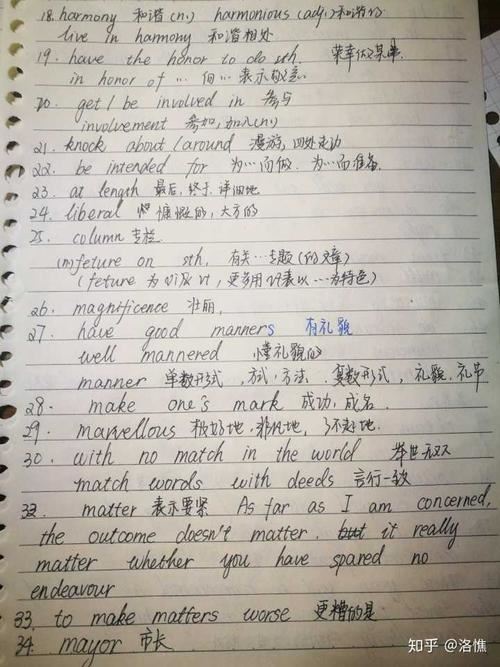 18. harmony 和谐 (n.) harmonious (adj.) 和谐的
live in harmony 和谐相处
19. have the honor to do sth. 荣幸做某事.
in honor of … 向… 表示敬意
20. get / be involved in 参与
involvement 参加, 加入(n)
21. knock about / around 漫游, 四处走动
222. be intended for 为…而做. 为…而准备.
23. at length 最后, 终于, 详细地
24. liberal 慷慨的, 大方的
25. column 专栏
(n) feture on sth. 有关…专题(的文章)
(feture 为 vi及 vt, 更多用 vt表以…为特色)
26. magnificence 壮丽,
27. have good manners 有礼貌
well mannered 懂礼貌的
manner 单数形式, 方式, 方法. 复数形式, 礼貌, 礼节
28. make one's mark 成功, 成名.
29. marvellous 极好地, 非凡地, 了不起地.
30. with no match in the world 举世无双
match words with deeds 言行一致
32. matter 表示要紧 As far as I am concerned,
the outcome doesn't matter. but it really
matter whether you have spared no
endeavour
33. to make matters worse 更糟的是
34. mayor 市长
知乎 @洛憔